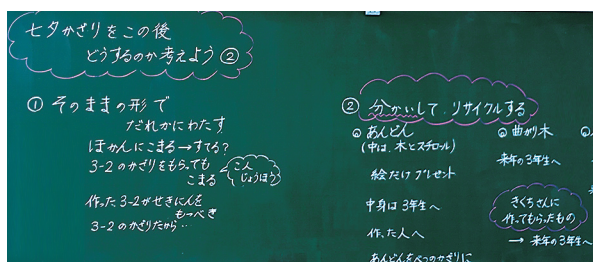 七夕かざりをこの後
どうするのか考えよう②
① そのままの形で
だれかにわたす
ほかんにこまる→すてる?
3-2のかざりをもらっても
こまる
こ人
じょうほう
作った3-2がせきにんを
もつべき
3-2のかざりだから…
② 分かいして、リサイクルする
あんどん
(中は、木とスチロール)
絵だけプレゼント
中身は3年生へ
作った人へ
あんどんをべつのかざりに
曲がり木
来年の3年生へ
きくちさんに
作ってもらったもの
→ 来年の3年生へ